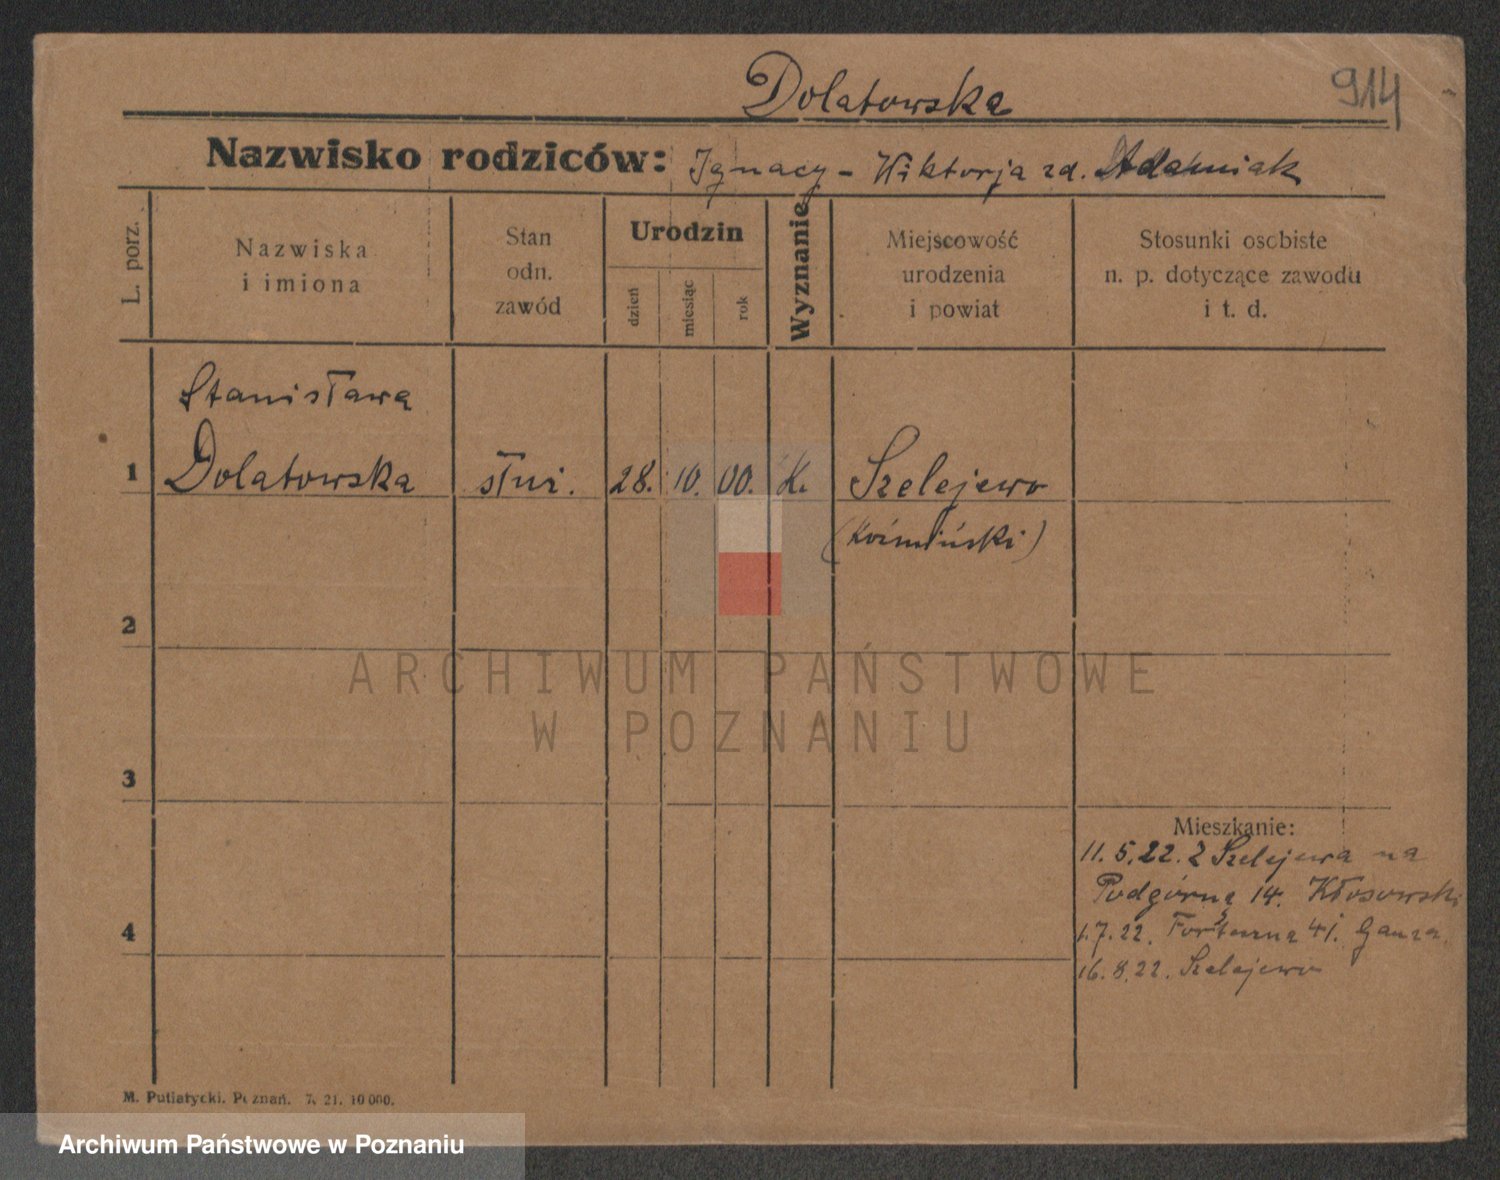 Dolatowska
914
Nazwisko rodziców: Ignacy - Wiktorja zd. Adamiak
L. porz.
Nazwiska
i imiona
Stan
odn.
zawód
Urodzin
dzień
miesiąc
rok
Wyznanie
Miejscowość
urodzenia
i powiat
Stosunki osobiste
n. p. dotyczące zawodu
i t. d.
Stanisława
1 Dolatowska służ. 28. 10. 00. K. Szelejewo
(Koźmiński)
2
ARCHIWUM PAŃSTWOWE
W POZNANIU
3
Mieszkanie:
11. 5. 22. z Szelejewa na
Podgórną 14. Kłosowski
4
1. 7. 22. 41. Ganza
16. 8. 22. Szelejewo
M. Putiatycki. Poznań. 7. 21. 10 000.
Archiwum Państwowe w Poznaniu